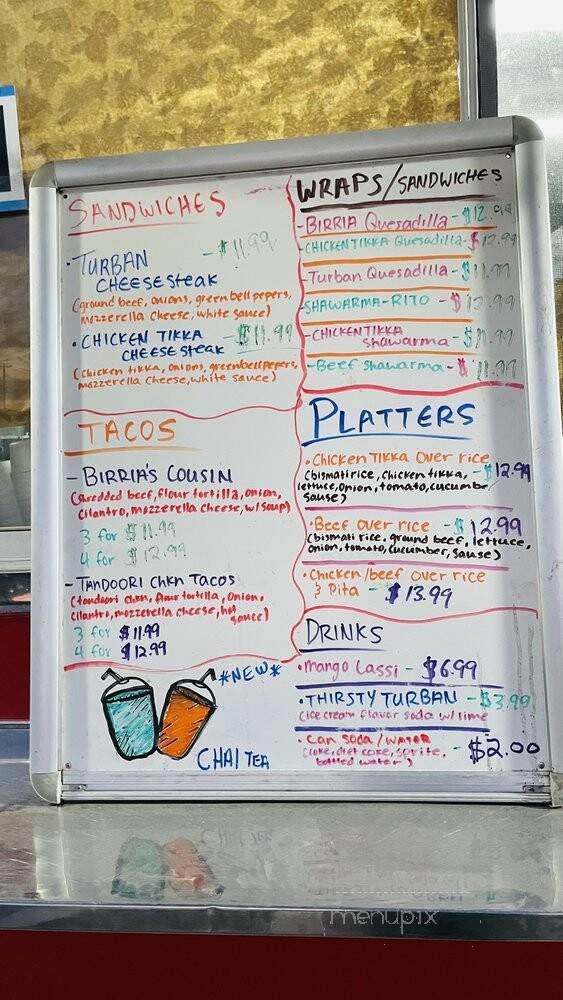 SANDWICHES
• TURBAN - $11.99
CHEESESteak
(ground beef, onions, green bell pepers,
mozzerella cheese, white sauce)
• CHICKEN TIKKA - $11.99
CHEESE steak
(chicken tikka, onions, greenbellpepers,
mozzerella cheese, white sauce)
TACOS
- BIRRIA'S COUSIN
(shredded beef, flour tortilla, onion,
cilantro, mozzerella cheese, w/soup)
3 for $11.99
4 for $12.99
- TANDOORI Chkn Tacos
(tandoori chkn, flour tortilla, onion,
cilantro, mozzerella cheese, hot
sauce)
3 for $11.99
4 for $12.99
*NEW*
CHAI TEA
WRAPS/SANDWICHES
- BIRRIA Quesadilla - $12.99
- CHICKEN TIKKA Quesadilla - $12.99
- Turban Quesadilla - $11.99
- SHAWARMA-RITO - $12.99
- CHICKEN TIKKA
shawarma - $11.99
- Beef Shawarma - $11.99
PLATTERS
• Chicken Tikka over rice
(bismati rice, chicken tikka, - $12.99
lettuce, onion, tomato, cucumbe,
sause)
• Beef over rice - $12.99
(bismati rice, ground beef, lettuce,
onion, tomato, cucumber, sause)
• Chicken/beef over rice
& Pita - $13.99
DRINKS
• Mango Lassi - $6.99
• THIRSTY TURBAN - $3.99
(ice cream flavor soda w/lime
• Can soda/water
(coke, diet coke, sprite, - $2.00
bottled water)
menupix